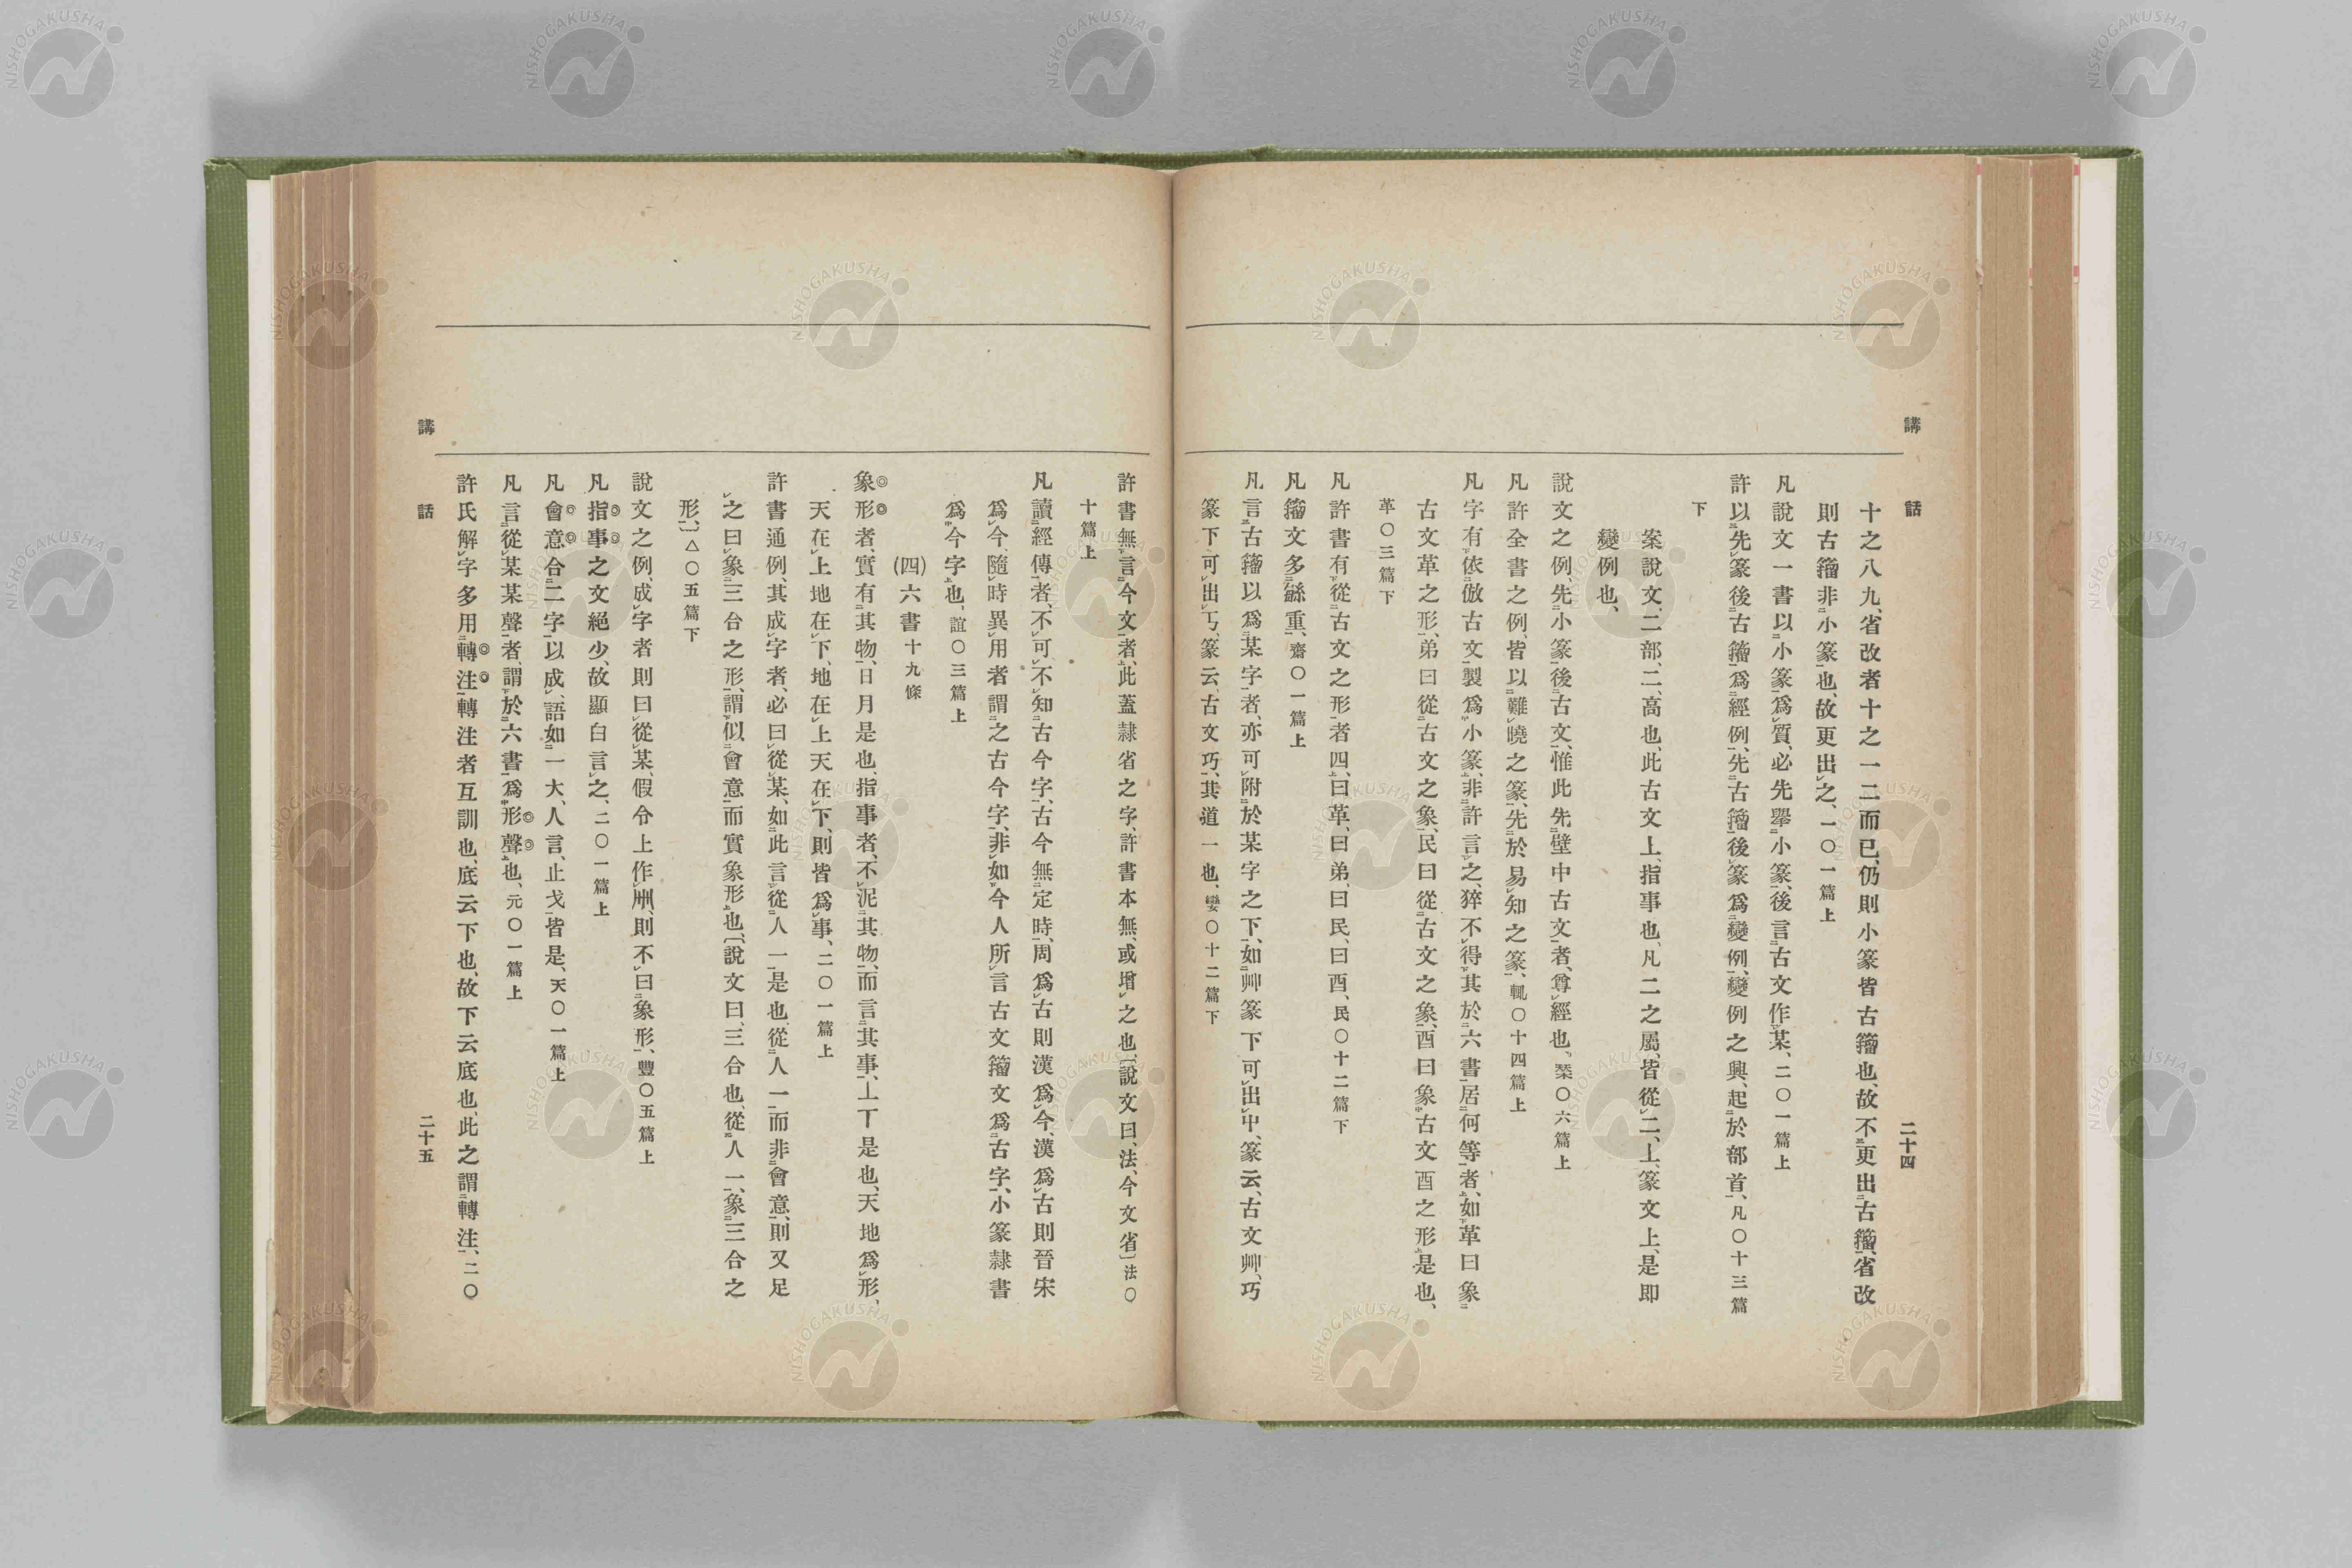 講話 二十四
十之八九、省改者十之一二而已、仍則小篆皆古籒也、故不更出古籒、省改
則古籒非小篆也、故更出之、一〇一篇上
凡說文一書以小篆爲質、必先擧小篆、後言古文作某、二〇一篇上
許以先篆後古籒爲經例、先古籒後篆爲變例、變例之興、起於部首、凡〇十三篇
下
案說文、二部、二、高也、此古文上、指事也、凡二之屬、皆從二、丄、篆文上、是即
變例也、
說文之例、先小篆後古文、惟此先壁中古文者、尊經也、㮚〇六篇上
凡許全書之例、皆以難曉之篆、先於易知之篆、輒〇十四篇上
凡字有依倣古文製爲小篆、非許言之、猝不得其於六書居何等者、如革曰象
古文革之形、弟曰從古文之象、民曰從古文之象、酉曰象古文酉之形是也、
革〇三篇下
凡許書有從古文之形者四、曰革、曰弟、曰民、曰酉、民〇十二篇下
凡籒文多繇重、齋〇一篇上
凡言古籒以爲某字者、亦可附於某字之下、如艸篆下可出屮、篆云、古文艸、巧
篆下可出丂、篆云古文巧、其道一也、孌〇十二篇下
許書無言今文者、此蓋隸省之字、許書本無、或增之也、〔說文曰、法、今文省〕法〇
十篇上
凡讀經傳者、不可不知古今字、古今無定時、周爲古則漢爲今、漢爲古則晉宋
爲今、隨時異用者謂之古今字、非如今人所言古文籒文爲古字、小篆隸書
爲今字也、誼〇三篇上
(四)六書十九條
象形者、實有其物、日月是也、指事者、不泥其物、而言其事、丄丅是也、天地爲形、
天在上地在下、地在上天在下、則皆爲事、二〇一篇上
許書通例、其成字者、必曰從某、如此言從人一是也、從人一而非會意、則又足
之曰象三合之形、謂似會意而實象形也、〔說文曰、三合也、從人一、象三合之
形、〕亼〇五篇下
說文之例、成字者則曰從某、假令上作𠁁、則不曰象形、豐〇五篇上
凡指事之文絕少、故顯白言之、二〇一篇上
凡會意合二字以成、語如一大、人言、止戈皆是、天〇一篇上
凡言從某某聲者、謂於六書爲形聲也、元〇一篇上
許氏解字多用轉注、轉注者互訓也、底云下也、故下云底也、此之謂轉注、二〇
講話 二十五